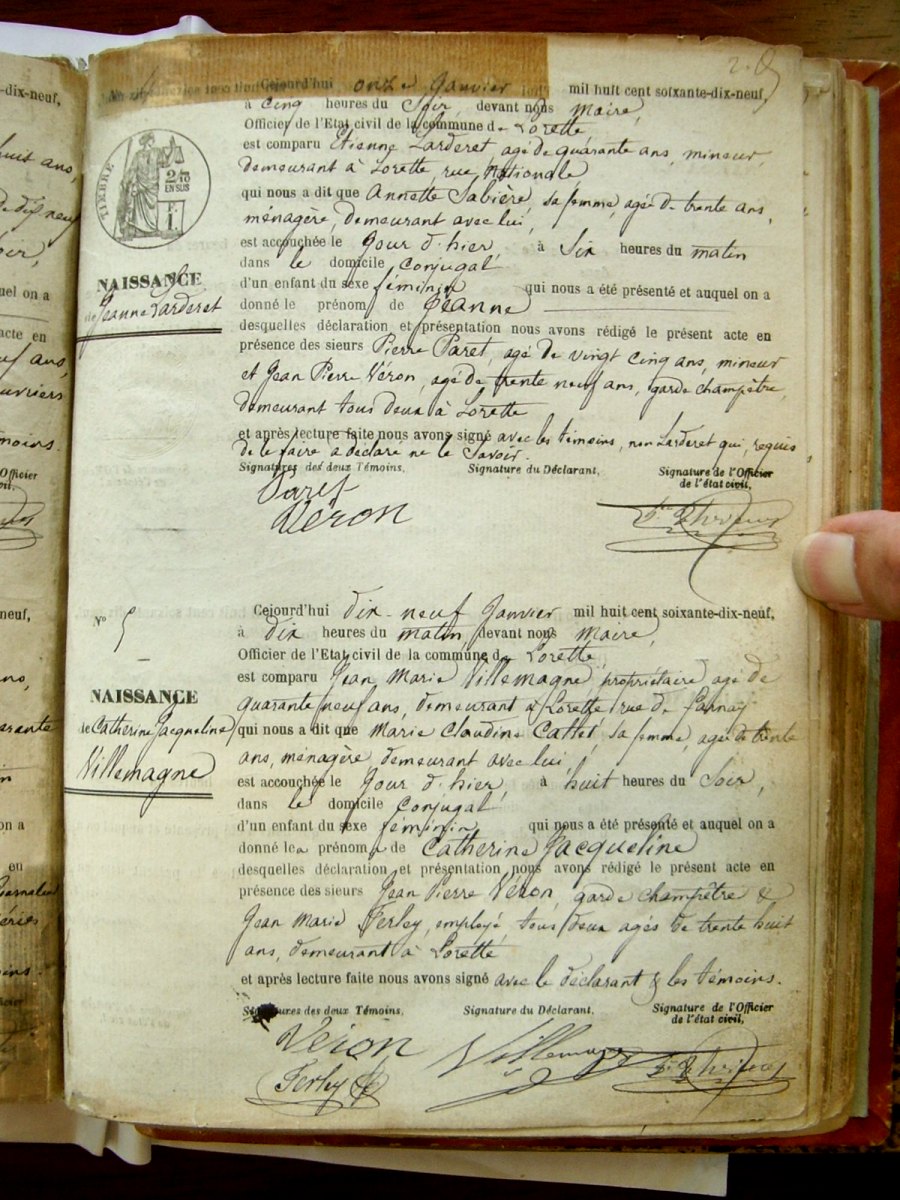 -dix-neuf,
huit ans,
de dix neuf
Soir,
quel on a
acte en
neuf ans,
ouvriers
témoins.
l'Officier
civil.
neuf,
ans,
quarante
on a
en
Journalier
témoins.
2.
Cejourd'hui onze Janvier mil huit cent soixante-dix-neuf,
à Cinq heures du Soir, devant nous Maire,
Officier de l'Etat civil de la commune de Lorette
est comparu Etienne Larderet, agé de quarante ans, mineur,
demeurant à Lorette, rue Nationale
qui nous a dit que Annette Sabière, sa femme, agée de trente ans,
ménagère, demeurant avec lui,
est accouchée le Jour d'hier, à Six heures du matin
dans le domicile Conjugal
d'un enfant du sexe féminin qui nous a été présenté et auquel on a
donné le prénom de Jeanne
desquelles déclaration et présentation nous avons rédigé le présent acte en
présence des sieurs Pierre Paret, agé de vingt cinq ans, mineur
et Jean Pierre Véron, agé de trente neuf ans, garde champêtre,
demeurant tous deux à Lorette
et après lecture faite nous avons signé avec les témoins, non Larderet qui, requis
de le faire a déclaré ne le Savoir.
Signatures des deux Témoins, Signature du Déclarant, Signature de l'Officier
de l'état civil,
Paret
Véron
TIMBRE
2/10
EN SUS
NAISSANCE
de Jeanne Larderet
N° 5
NAISSANCE
de Catherine Jacqueline
Villemagne
Cejourd'hui dix-neuf Janvier mil huit cent soixante-dix-neuf,
à dix heures du matin, devant nous Maire,
Officier de l'Etat civil de la commune de Lorette
est comparu Jean Marie Villemagne, propriétaire agé de
quarante neuf ans, demeurant à Lorette, rue de Farnay
qui nous a dit que Marie Claudine Cattet, sa femme agée de trente
ans, ménagère demeurant avec lui,
est accouchée le Jour d'hier, à huit heures du Soir,
dans le domicile Conjugal
d'un enfant du sexe féminin qui nous a été présenté et auquel on a
donné les prénoms de Catherine Jacqueline
desquelles déclaration et présentation nous avons rédigé le présent acte en
présence des sieurs Jean Pierre Véron, garde champêtre &
Jean Marie Ferley, employé, tous deux agés de trente huit
ans, demeurant à Lorette
et après lecture faite nous avons signé avec le déclarant & les témoins.
Signatures des deux Témoins, Signature du Déclarant, Signature de l'Officier
de l'état civil,
Véron Villemagne
Ferley